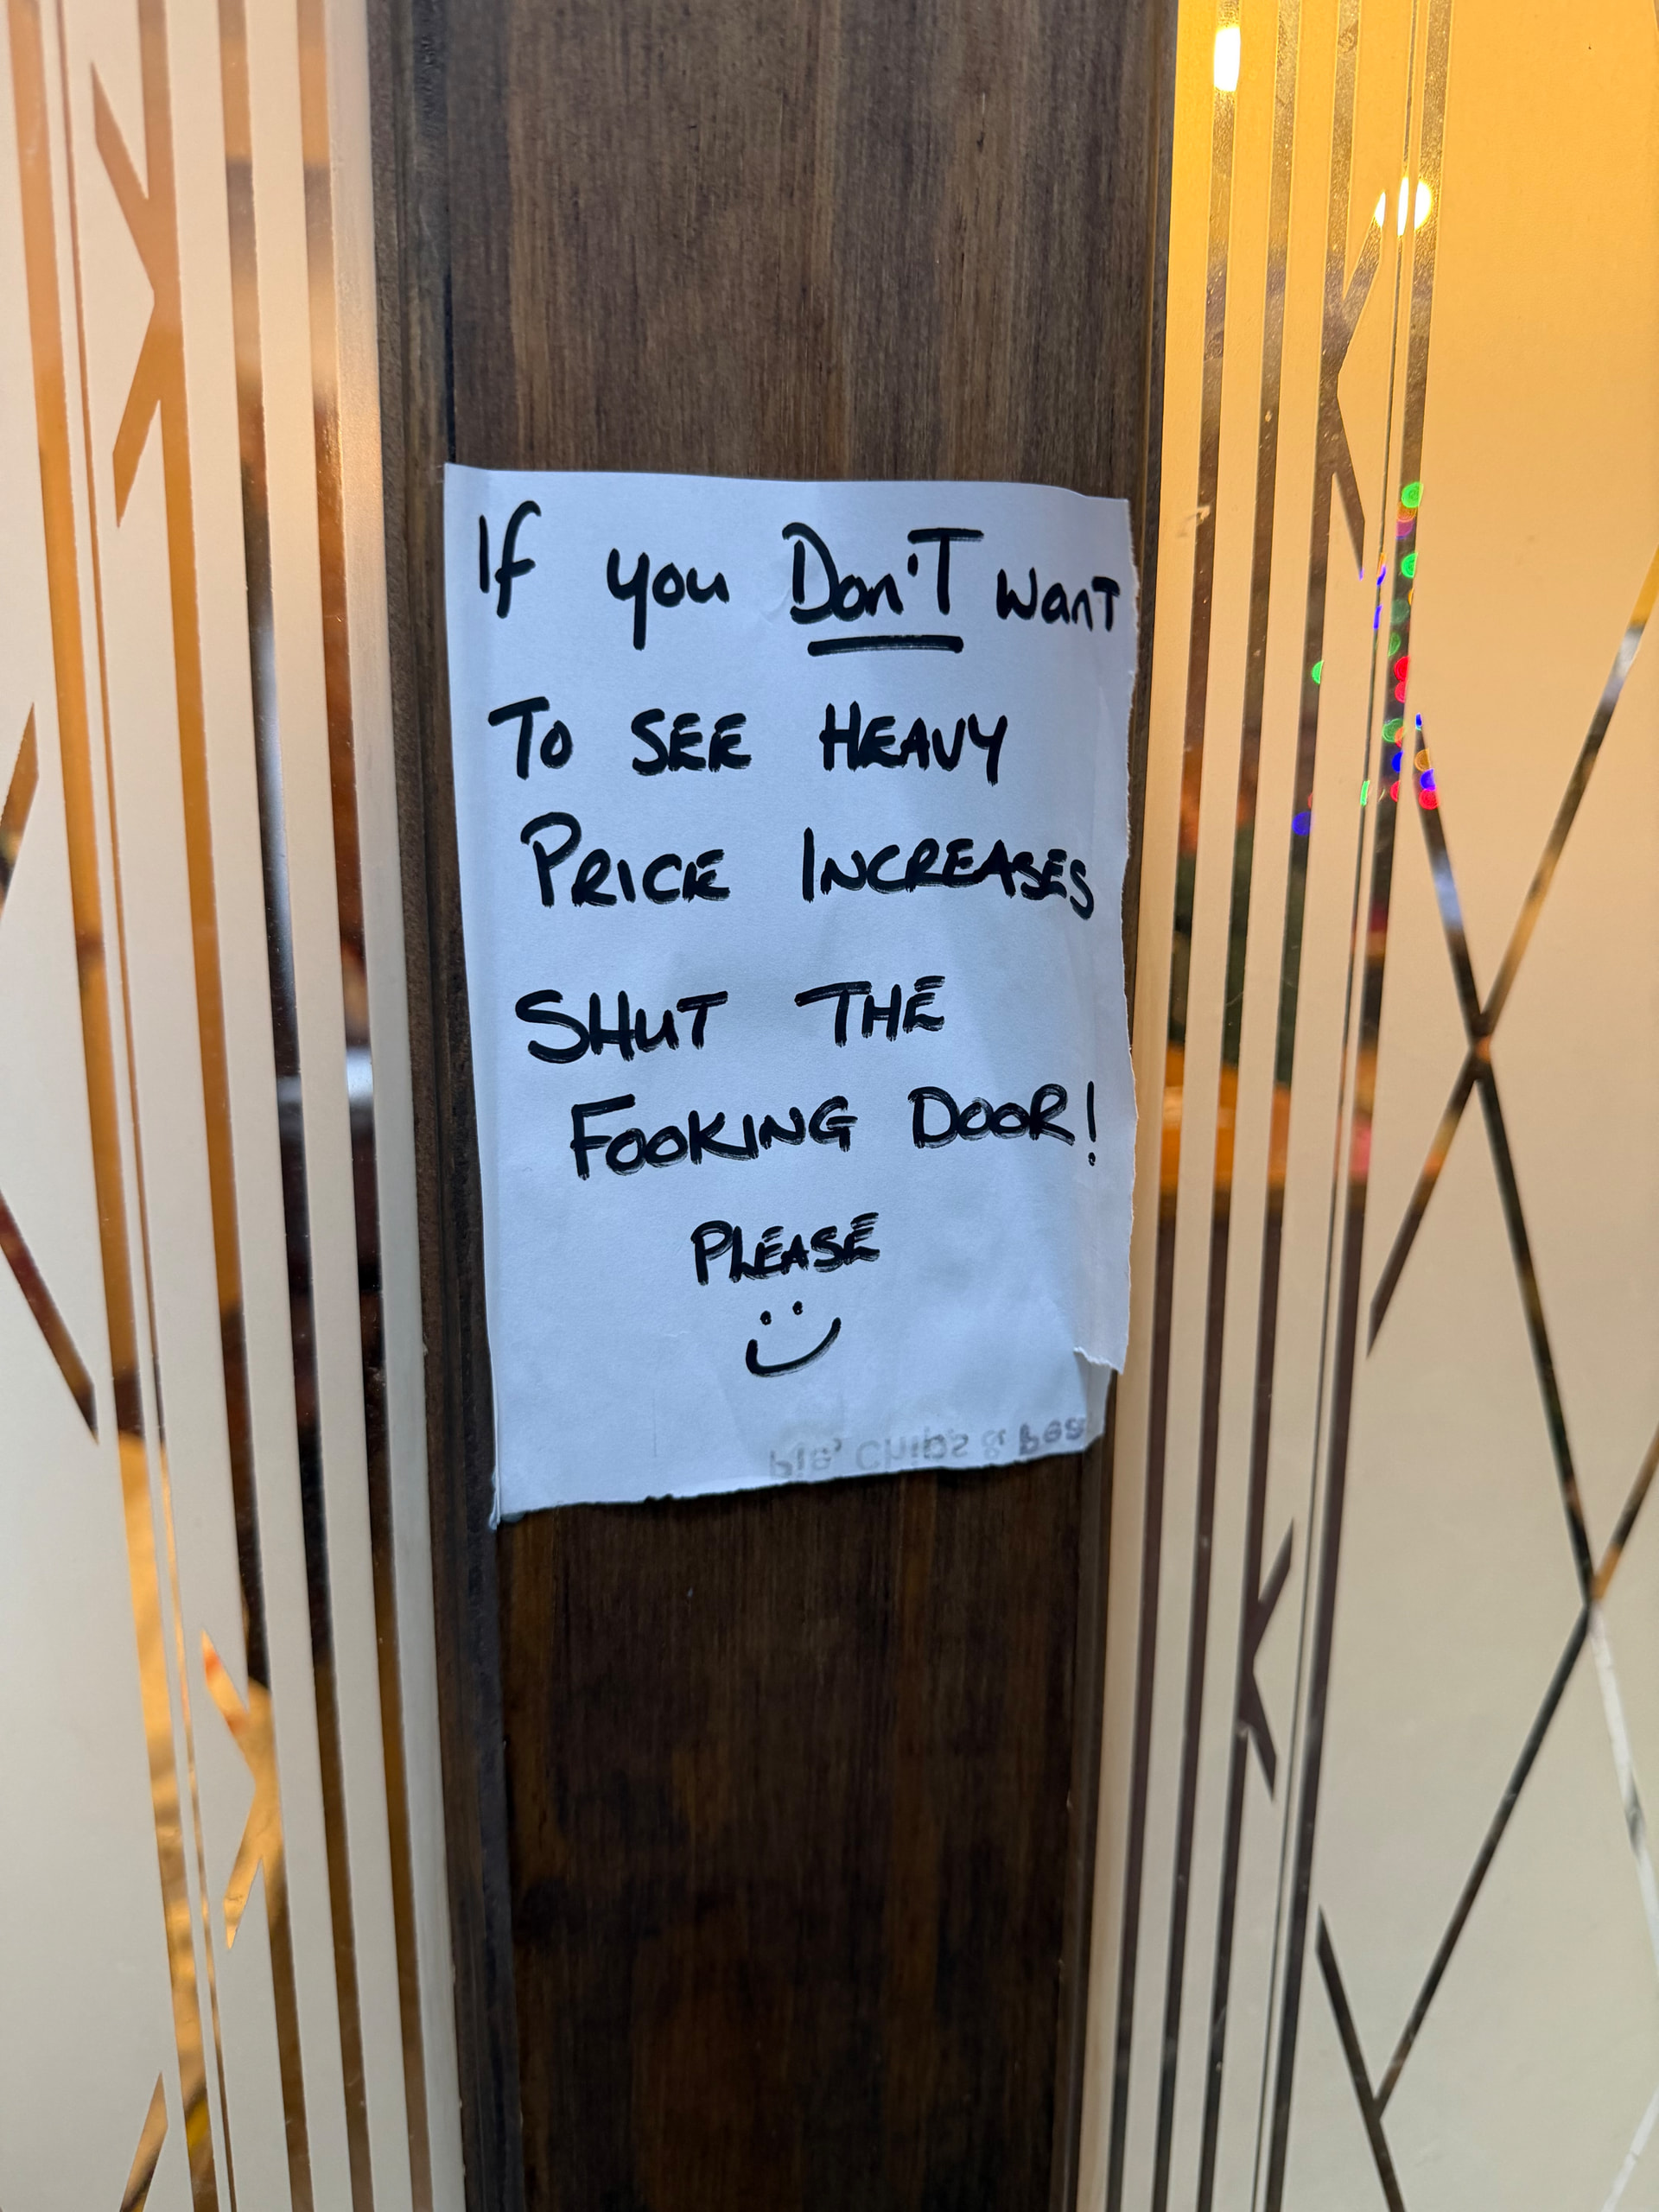 If you Don'T want
To SEE HEAVY
PRICE INCREASES
SHuT THE
FOOKING DOOR!
PLEASE
Pie, Chips & Pea